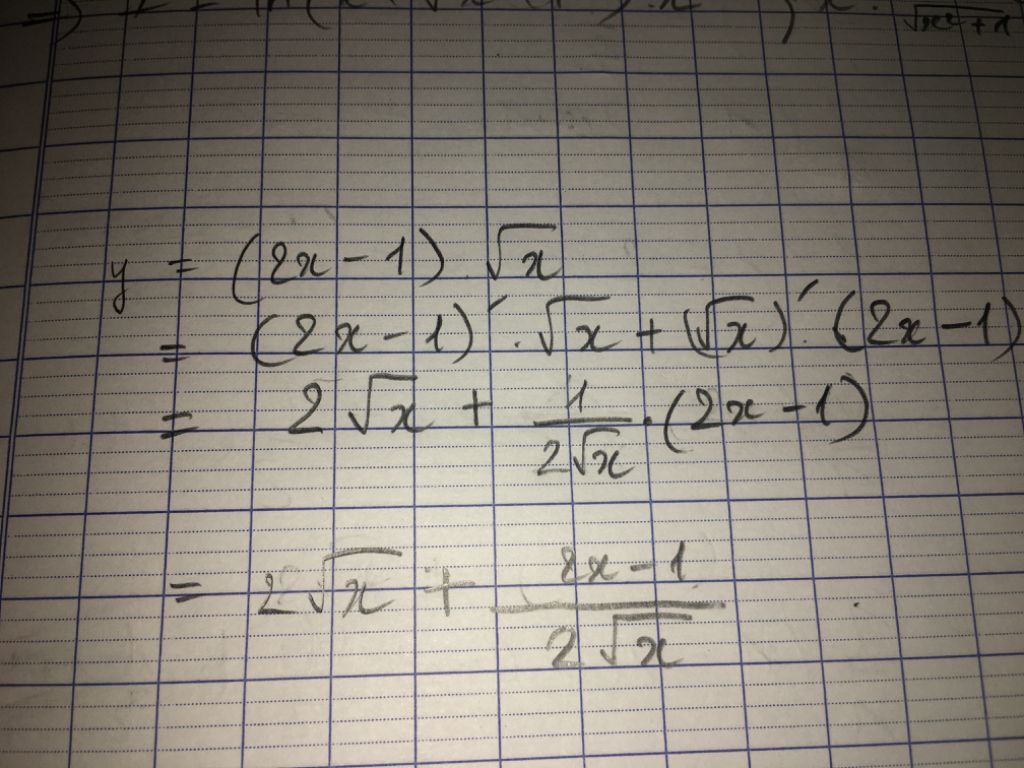 √x²+1
y = (2x-1).√x
= (2x-1)'.√x + (√x)'.(2x-1)
= 2√x + 1/2√x.(2x-1)
= 2√x + 2x-1/2√x